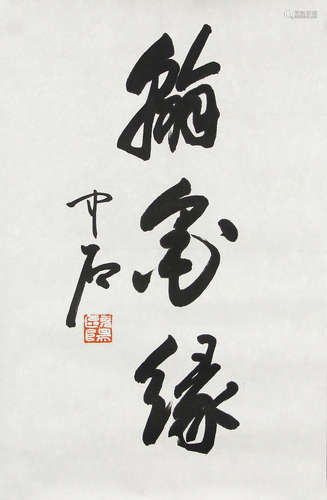 翰墨缘
中石